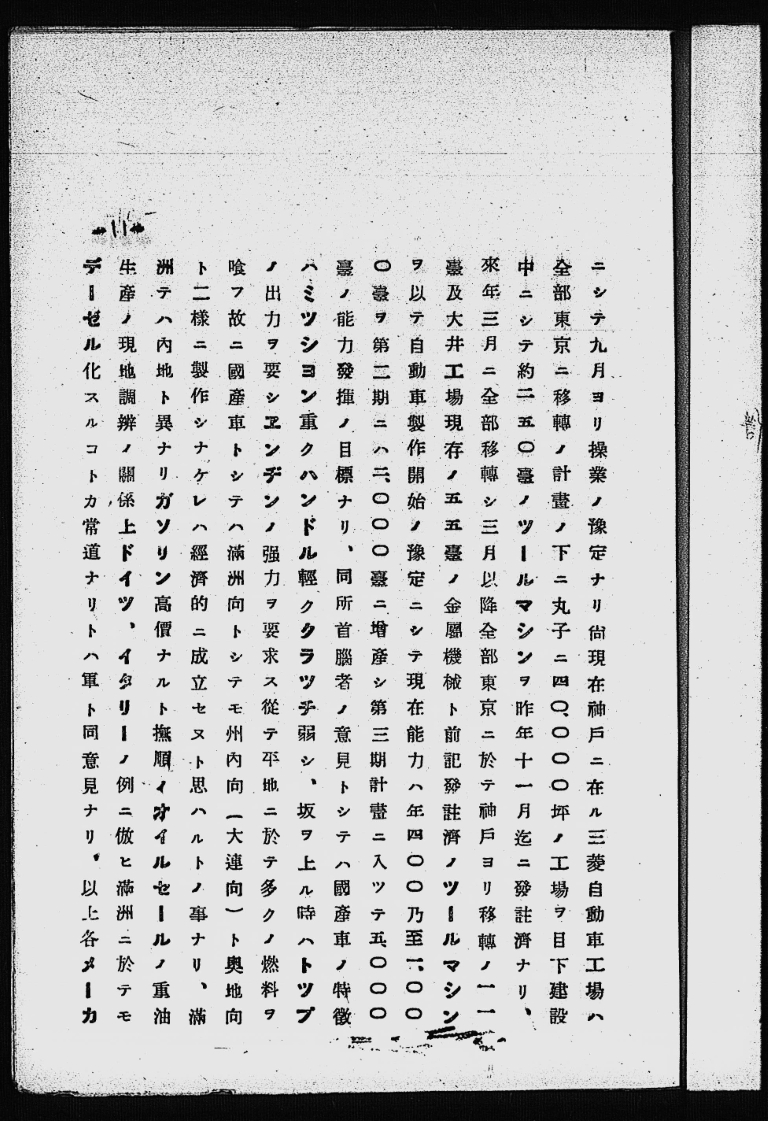 ニシテ九月ヨリ操業ノ豫定ナリ尙現在神戶ニ在ル三菱自動車工場ハ
全部東京ニ移轉ノ計畫ノ下ニ丸子ニ四〇、〇〇〇坪ノ工場ヲ目下建設
中ニシテ約二五〇臺ノツールマシンヲ昨年十一月迄ニ發註濟ナリ、
來年三月ニ全部移轉シ三月以降全部東京ニ於テ神戶ヨリ移轉ノ一一
臺及大井工場現存ノ五五臺ノ金屬機械ト前記發註濟ノツールマシン
ヲ以テ自動車製作開始ノ豫定ニシテ現在能力ハ年四〇〇乃至一、〇〇
〇臺ヲ第二期ニハ二、〇〇〇臺ニ增產シ第三期計畫ニ入ツテ五、〇〇〇
臺ノ能力發揮ノ目標ナリ、同所首腦者ノ意見トシテハ國產車ノ特徵
ハミツシヨン重クハンドル輕ククラツチ弱シ、坂ヲ上ル時ハトツプ
ノ出力ヲ要シヱンヂンノ强力ヲ要求ス從テ平地ニ於テ多クノ燃料ヲ
喰フ故ニ國產車トシテハ滿洲向トシテモ州內向(大連向)ト奧地向
ト二樣ニ製作シナケレハ經濟的ニ成立セヌト思ハルトノ事ナリ、滿
洲テハ內地ト異ナリガソリン高價ナルト撫順ノオイルセールノ重油
生產ノ現地調辨ノ關係上ドイツ、イタリーノ例ニ倣ヒ滿洲ニ於テモ
デーゼル化スルコトカ常道ナリトハ軍ト同意見ナリ。以上各メーカ
11